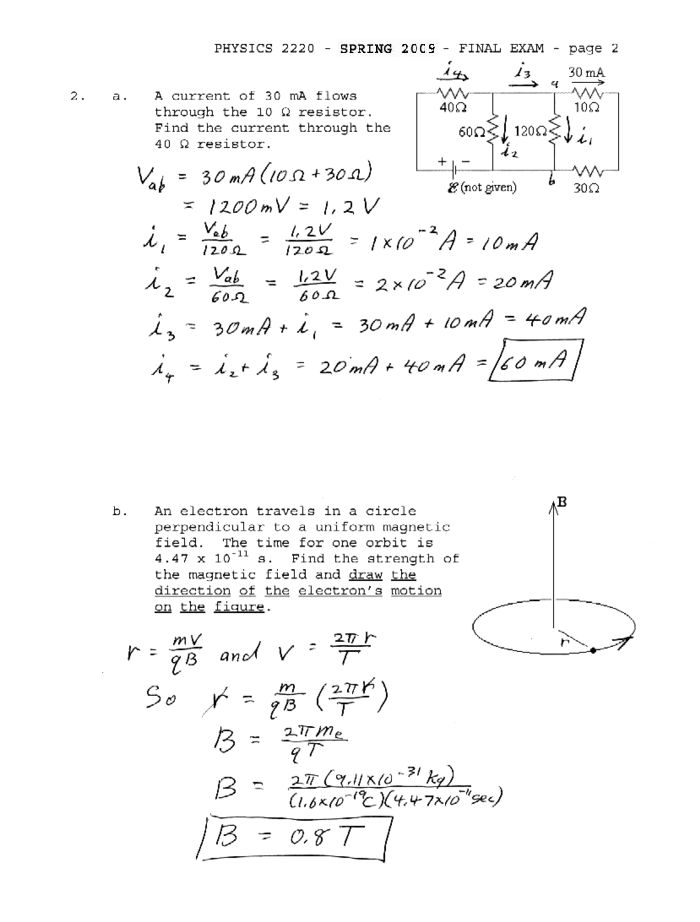 PHYSICS 2220 - SPRING 2009 - FINAL EXAM - page 2
2. a. A current of 30 mA flows
through the 10 Ω resistor.
Find the current through the
40 Ω resistor.
i₄ i₃ 30 mA
a
40Ω 10Ω
60Ω 120Ω i₁
i₂
+ - b
ℰ (not given) 30Ω
V_ab = 30 mA (10Ω + 30Ω)
= 1200 mV = 1.2 V
i₁ = V_ab / 120Ω = 1.2V / 120Ω = 1 x 10⁻² A = 10 mA
i₂ = V_ab / 60Ω = 1.2V / 60Ω = 2 x 10⁻² A = 20 mA
i₃ = 30mA + i₁ = 30 mA + 10 mA = 40 mA
i₄ = i₂ + i₃ = 20 mA + 40 mA = 60 mA
b. An electron travels in a circle
perpendicular to a uniform magnetic
field. The time for one orbit is
4.47 x 10⁻¹¹ s. Find the strength of
the magnetic field and draw the
direction of the electron's motion
on the figure.
B
r
r = mv / qB and v = 2πr / T
So r = m / qB (2πr / T)
B = 2πmₑ / qT
B = 2π (9.11 x 10⁻³¹ kg) / (1.6 x 10⁻¹⁹ C)(4.47 x 10⁻¹¹ sec)
B = 0.8 T